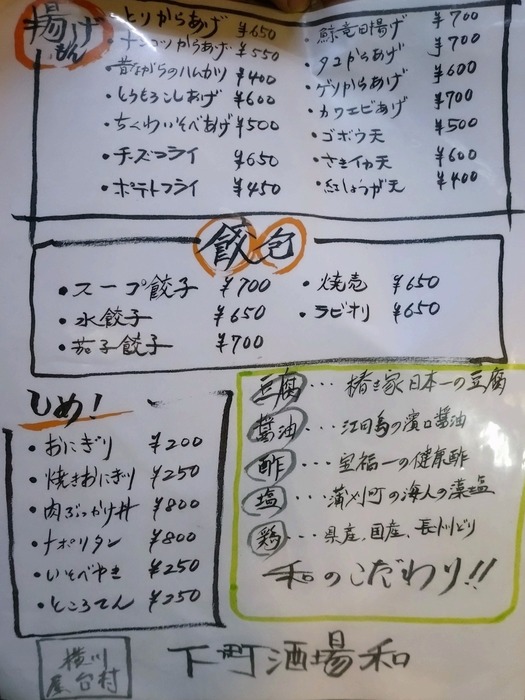 揚げもん
・とりからあげ ¥650
・ナンコツからあげ ¥550
・昔ながらのハムカツ ¥400
・とうもろこしあげ ¥600
・ちくわいそべあげ ¥500
・チーズフライ ¥650
・ポテトフライ ¥450
・鯨竜田揚げ ¥700
・タコからあげ ¥700
・ゲソからあげ ¥600
・カワエビあげ ¥700
・ゴボウ天 ¥500
・さきイカ天 ¥600
・紅しょうが天 ¥400
餃包
・スープ餃子 ¥700
・水餃子 ¥650
・茄子餃子 ¥700
・焼売 ¥650
・ラビオリ ¥650
しめ!
・おにぎり ¥200
・焼きおにぎり ¥250
・肉ぶっかけ丼 ¥800
・ナポリタン ¥800
・いそべやき ¥250
・ところてん ¥250
豆腐・・・椿き家日本一の豆腐
醤油・・・江田島の濱口醤油
酢・・・宝福一の健康酢
塩・・・蒲刈町の海人の藻塩
鶏・・・県産、国産、長州どり
和のこだわり!!
横川
屋台村
下町酒場和